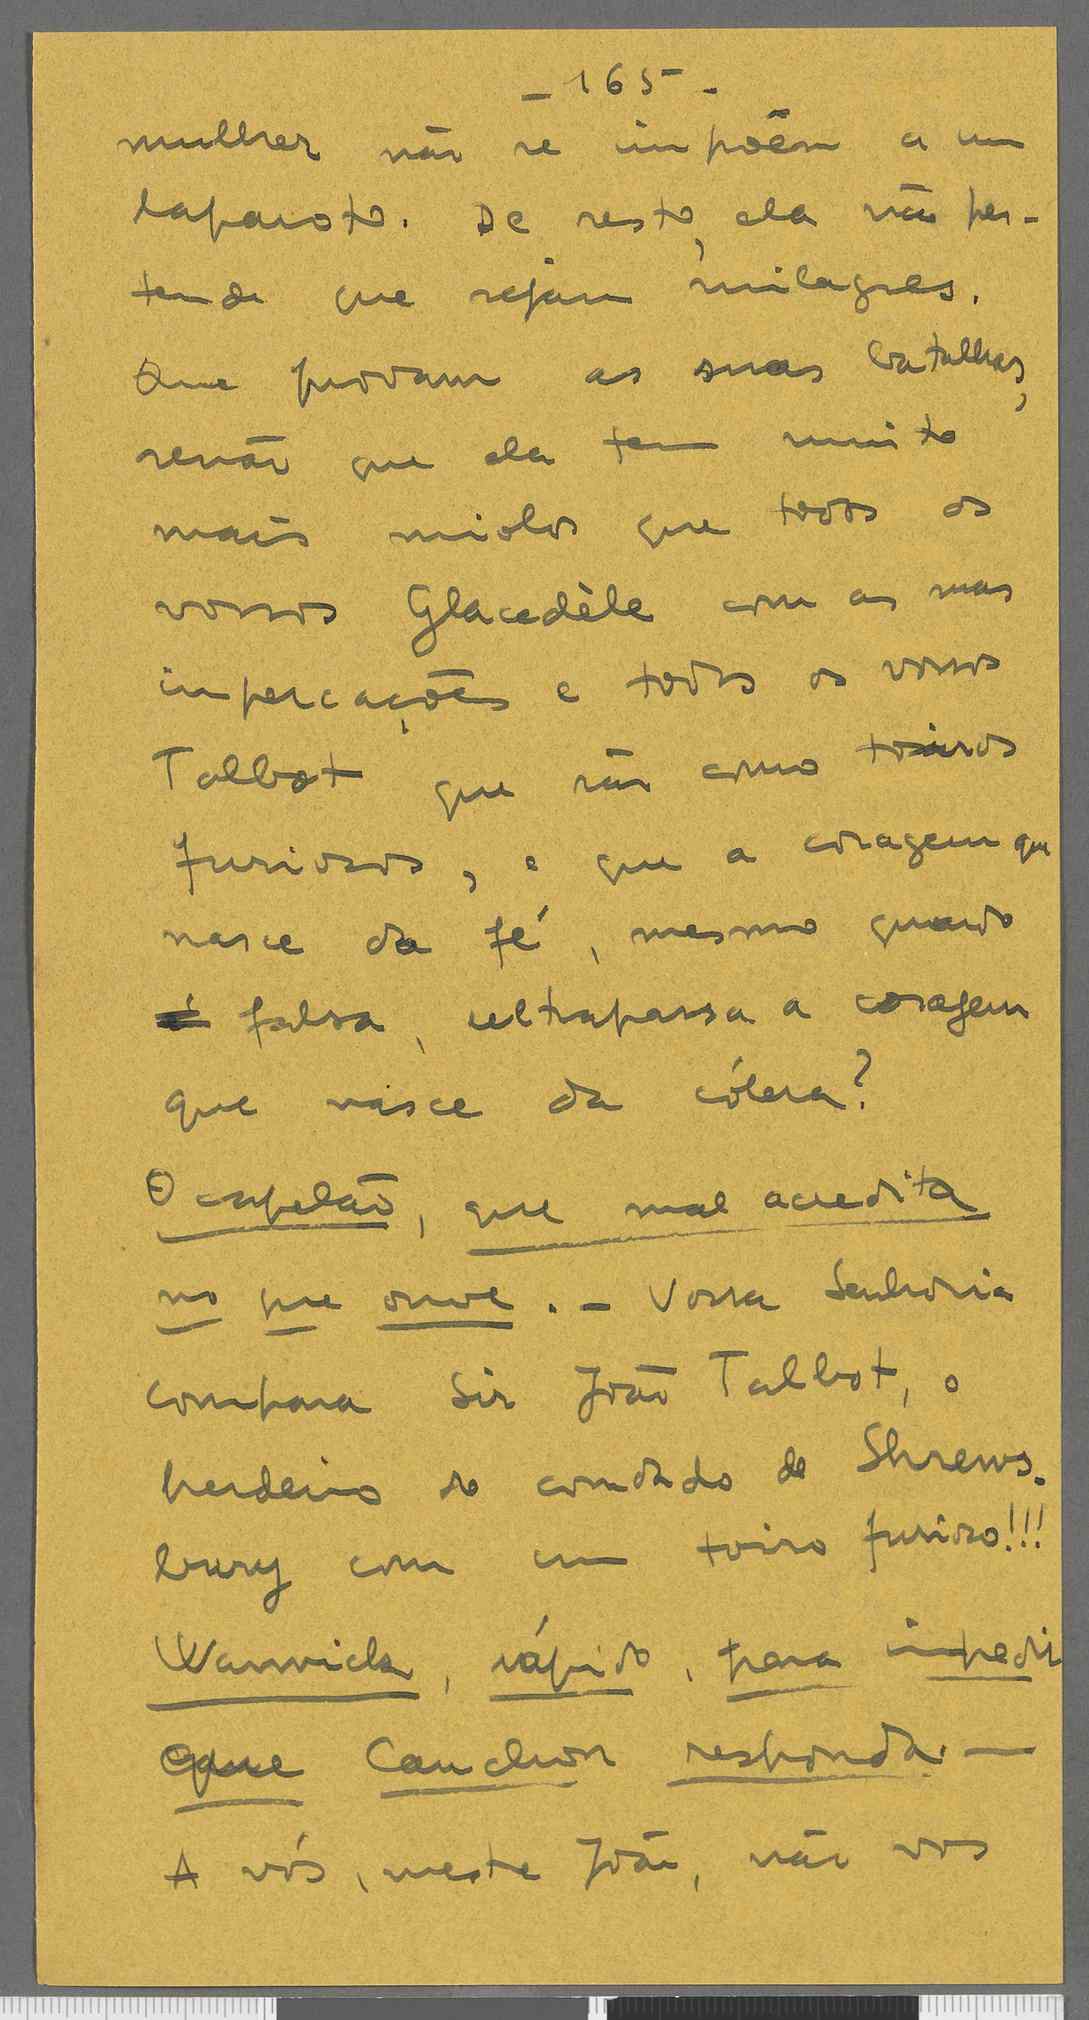 - 165 -
mulher não se impõem a um
laparoto. De resto, ela não per-
tende que sejam milagres.
Que provam as suas batalhas,
senão que ela tem muito
mais miolos que todos os
vossos Glacedèle com as suas
impercações e todos os vossos
Talbot que são como toiros
furiosos, e que a coragem que
nasce da fé, mesmo quando
é falsa, ultrapassa a coragem
que nasce da cólera?
O capelão, que mal acredita
no que ouve. - Vossa Senhoria
compara Sir João Talbot, o
herdeiro do condado de Shrews-
bury com um toiro furioso!!!
Warwick, rápido, para impedir
que Cauchon responda. -
A vós, mestre João, não vos